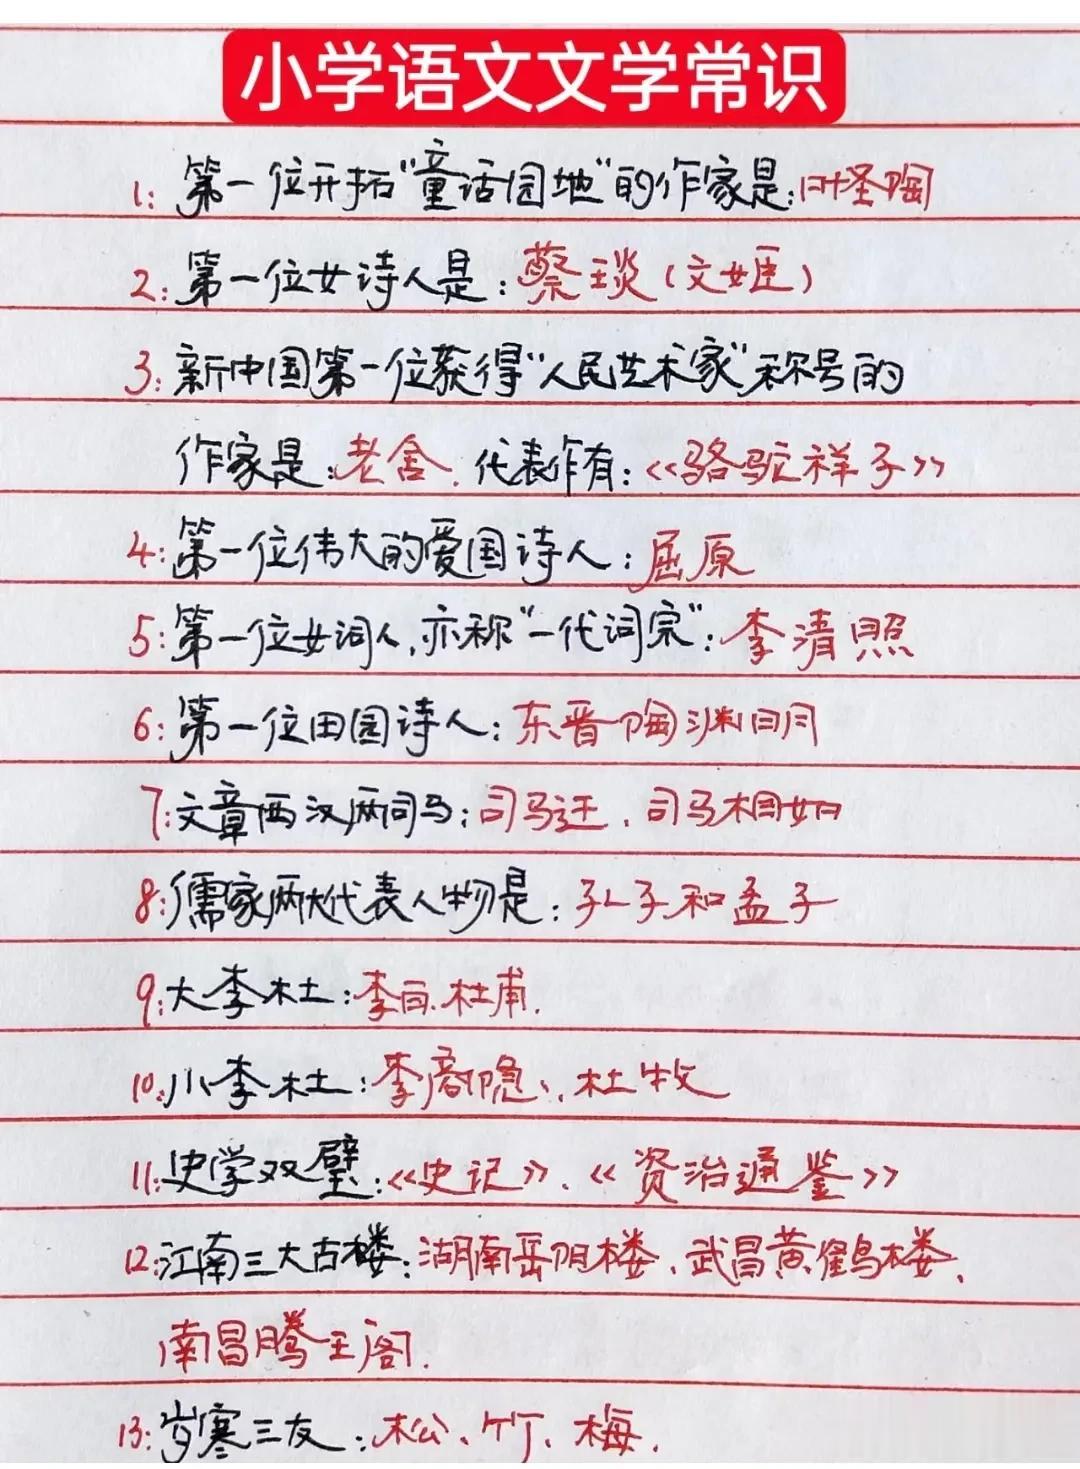 小学语文文学常识
1: 第一位开拓“童话园地”的作家是: 叶圣陶
2: 第一位女诗人是: 蔡琰(文姬)
3: 新中国第一位获得“人民艺术家”称号的
作家是: 老舍. 代表作有: 《骆驼祥子》
4: 第一位伟大的爱国诗人: 屈原
5: 第一位女词人,亦称“一代词宗”: 李清照
6: 第一位田园诗人: 东晋陶渊明
7: 文章西汉两司马: 司马迁、司马相如
8: 儒家两大代表人物是: 孔子和孟子
9: 大李杜: 李白.杜甫.
10: 小李杜: 李商隐、杜牧
11: 史学双璧: 《史记》、《资治通鉴》
12: 江南三大古楼: 湖南岳阳楼、武昌黄鹤楼、
南昌腾王阁.
13: 岁寒三友: 松、竹、梅.